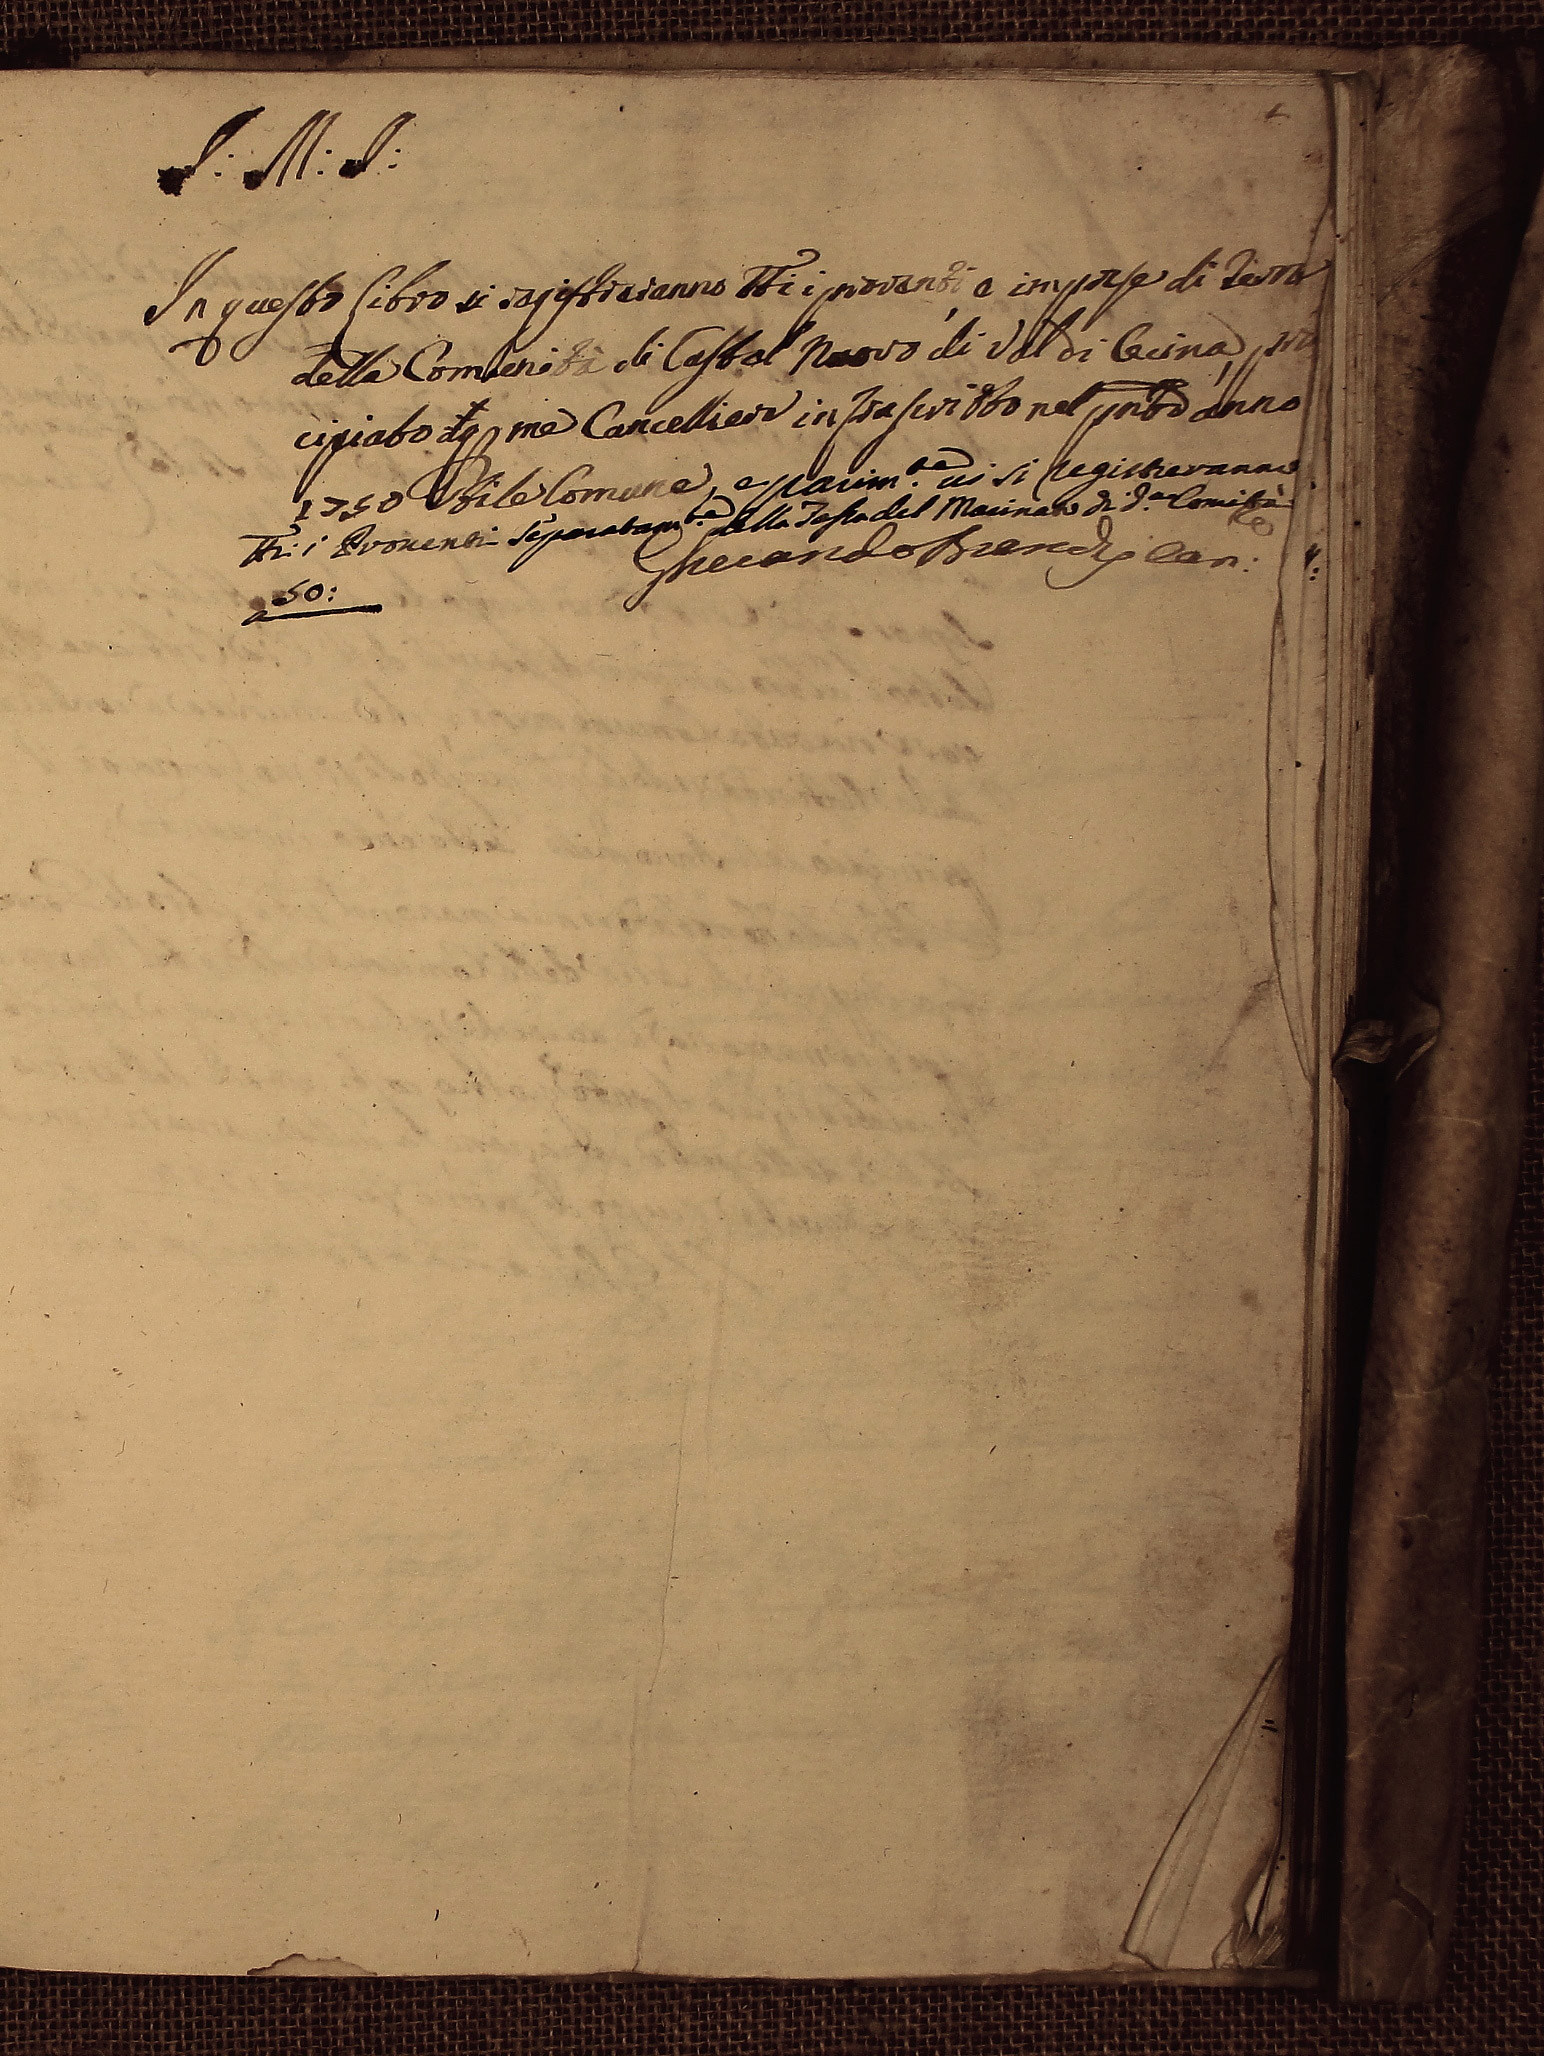 J: M: J:
In questo Libro si registreranno tti i proventi, e impose di Terre
della Comunità di Castel Nuovo di Val di Cecina, prin
cipiato da me Cancelliere infrascritto nel pntē anno
1750 Stile Comune, e parim.te ui si registreranno
tti: i Proventi separatam.te della Tassa del Macinato di d.a Comità
Gherardo Can:
a 50: